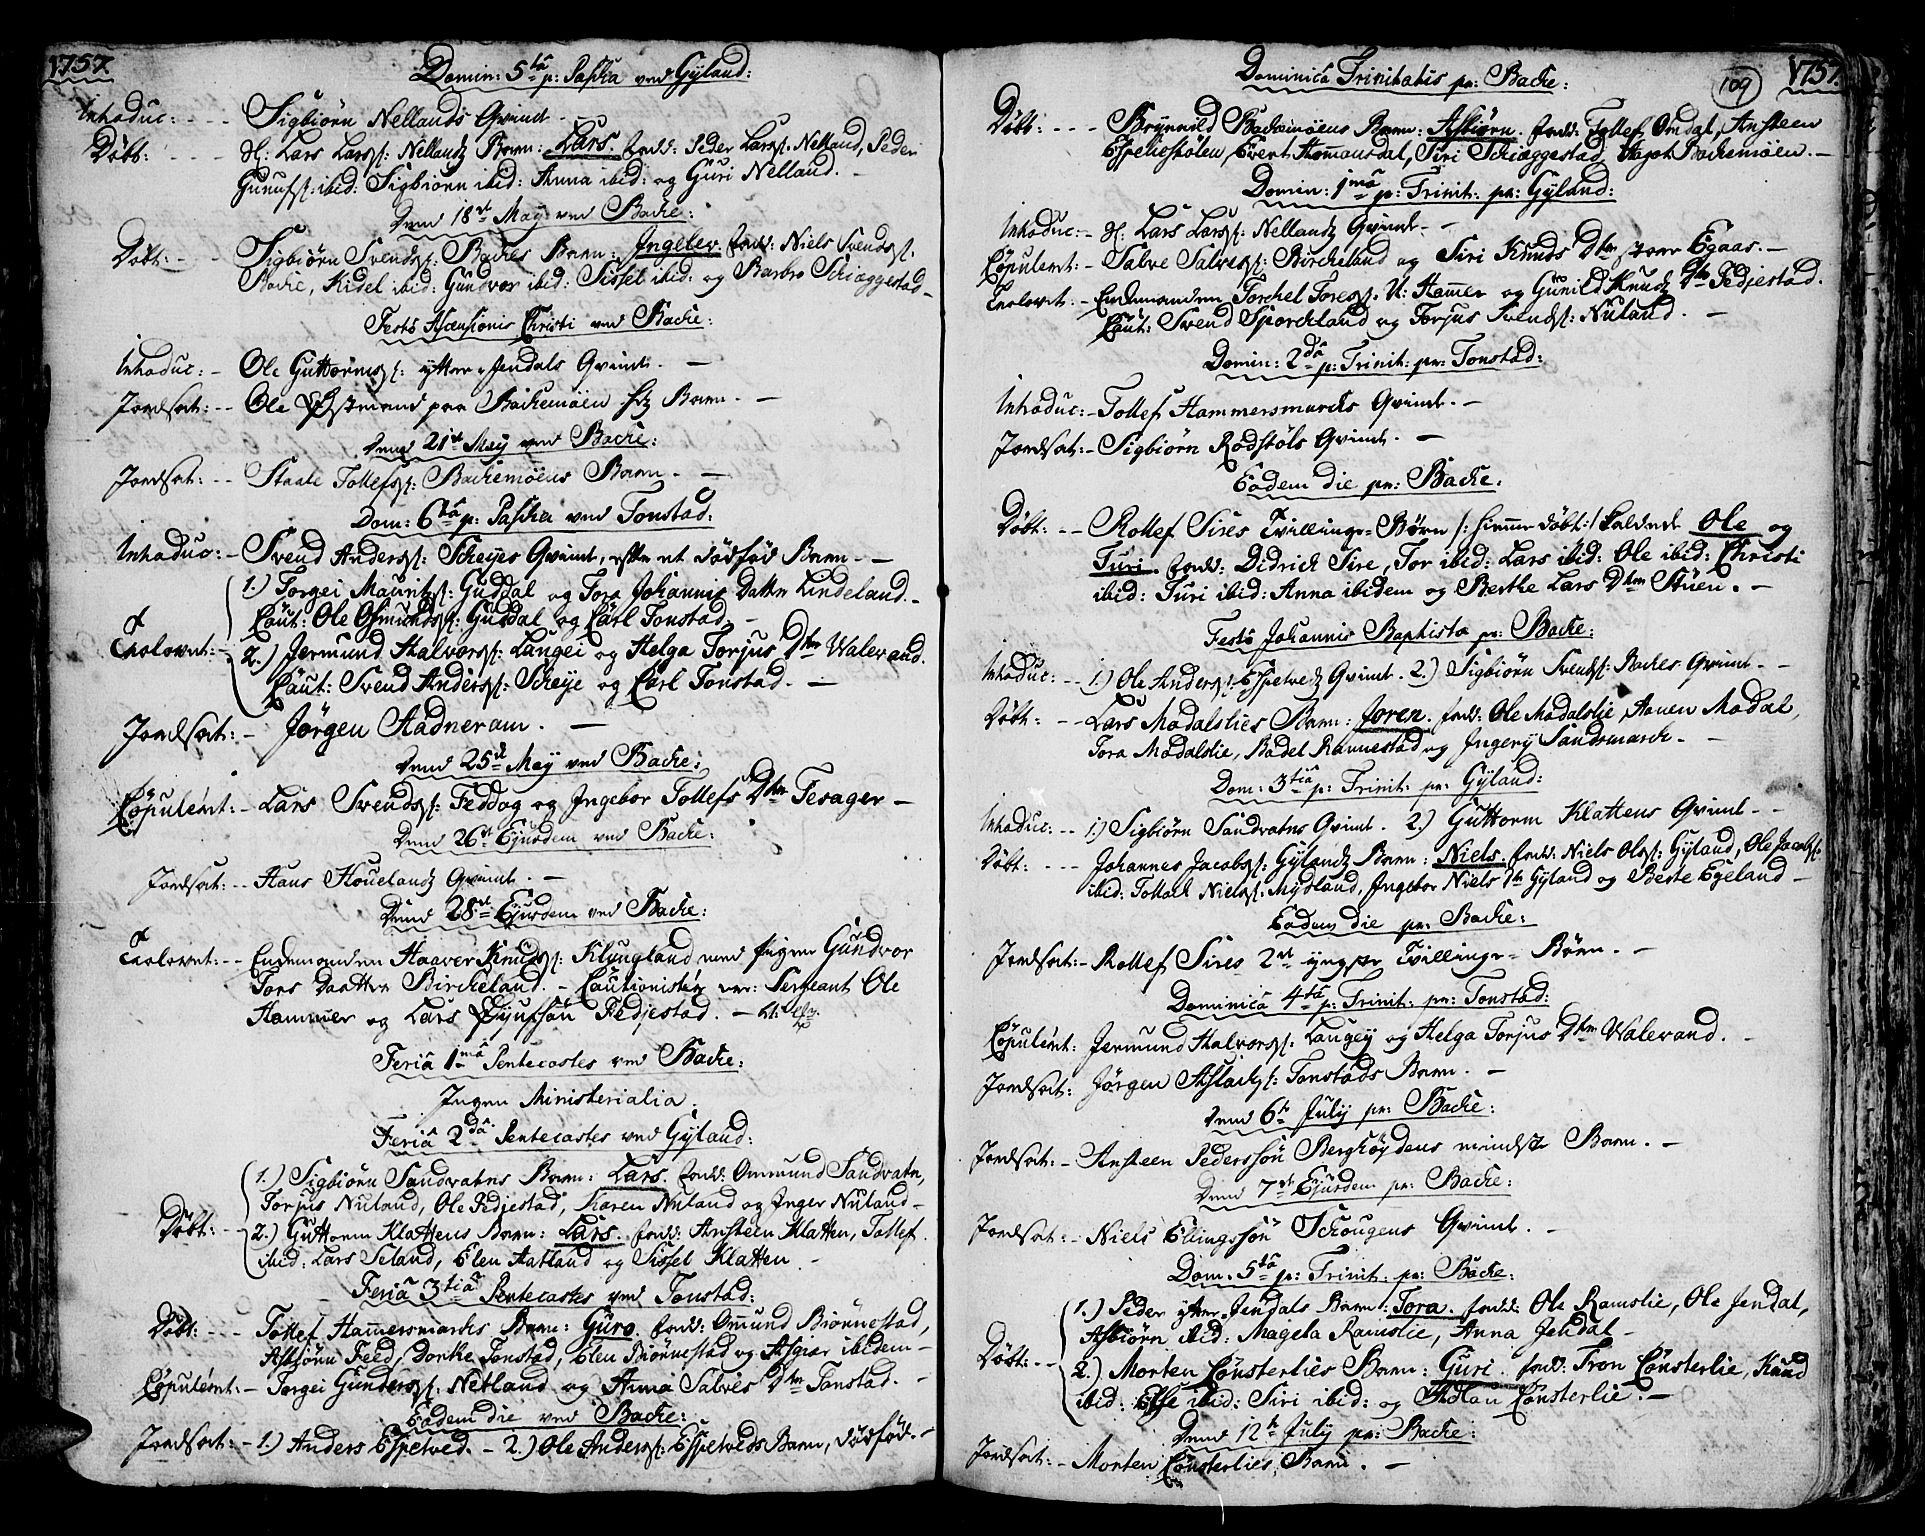 1757.
Domin: 5ta p: Pascha ved Gyland:
Introduc: - - - Sigbiørn Nellands Qvinde -
Døbt: - - - Sl: Lars Larss: Nellands Barn: Lars. fadd: Peder Larss: Nelland, Peder
Gunufs: ibid: Sigbiørn ibid: Anna ibid: og Guri Nelland. -
Dend 18de May ved Backe:
Døbt: - - Sigbiørn Svends: Backes Barn: Ingelev. fadd: Niels Svends:
Backe, Kidel ibid: Gundvor ibid: Sissel ibid: og Barbro Schiæggestad -
Festo Ascensionis Christi ved Backe:
Introduc: - Ole Guttorms: ytter-Jendals Qvinde. -
Jordsat: - - Ole Postmand paa Backemoen Barn. -
Dend 21de May ved Backe:
Jordsat: - - Staale Tollefs: Backemoens Barn. -
Dom: 6ta p: Pascha ved Tonstad:
Introduc: - Svend Anders: Scheyes Qvinde, efter et dødfød Barn. -
1.) Torgei Mauritz: Guddal og Tora Johannis Datter Lindeland. -
Caut: Ole Osmunds: Guddal og Carl Tonstad. -
Trolovet: - 2.) Jermund Halvors: Langei og Helga Torjus Dtr Valevand.
Caut: Svend Anders: Scheye og Carl Tonstad. -
Jordsat: - Jørgen Hadneram. -
Dend 25de May ved Backe:
Copuleret: - Lars Svends: Feddog og Ingebor Tollefs Dtr Fesager -
Dend 26de Ejusdem ved Backe:
Jordsat: - - Hans Houelands Qvinde. -
Dend 28de Ejusdem ved Backe:
Trolovet: - - Enkemanden Haaver Knuds: Klungland med Pigen Gundvor
Tors Daatter Birckeland. - Cautionister var: Sergeant Ole
Hammer og Lars Fedjestad. -
Feria 1ma Pentecostes ved Backe:
Ingen Ministerialia.
Feria 2da Pentecostes ved Gyland:
1.) Sigbiørn Sandvatns Barn: Lars. fadd: Ommund Sandvatn,
Torjus Nuland, Ole Fedjestad, Karen Nuland og Inger Nuland -
Døbt: - - 2.) Guttorm Klattens Barn: Lars. fadd: Ansteen Klatten, Tollef
ibid: Lars Seland, Elen Aatland og Sissel Klatten. -
Feria 3tia Pentecostes ved Tonstad:
Døbt: - - - Tollef Hamersmarks Barn: Guro. fadd: Omund Biørnestad,
Asbiørn Feed, Dorthe Tonstad, Elen Biørnestad og Asgiær ibidem -
Copuleret: - Torgei Gunders: Netland og Anna Salves Dtr Tonstad. -
Eadem die ved Backe:
Jordsat: - 1.) Anders Espetved. - 2.) Ole Anders: Espetveds Barn, dødfød. -
109
1757.
Dominica Trinitatis paa Backe:
Døbt: - - - Brynnild Backemoens Barn: Asbiørn. fadd: Tollef Omdal, Ansteen
Espeliestolen, Evert Hommansdal, Siri Schiæggestad, Aagot Backemoen. -
Domin: 1ma p: Trinit: paa Gyland:
Introduc: - Sl: Lars Larss: Nellands Qvinde. -
Copuleret: - Salve Salves: Birckeland og Siri Knuds Dtr store Egaas. -
Trolovet: - Enkemanden Torchel Tores: N: Hamer og Gunild Knuds Dtr Fedjestad.
Caut: Svend Sporckland og Torjus Svends: Nuland. -
Domin: 2da p: Trinit: paa Tonstad:
Introduc: - Tollef Hammersmarcks Qvinde. -
Jordsat: - Sigbiørn Rodstøls Qvinde. -
Eadem die paa Backe:
Døbt: - - Rollef Sires Tvillinge-Børn /: hjemme døbt :/ kaldede Ole og
Turi. fadd: Didrich Sire, Tor ibid: Lars ibid: Ole ibid: Christi
ibid: Turi ibid: Anna ibidem og Berthe Lars Dtr Stuen. -
Festo Johannis Baptista paa Backe:
Introduc: - - 1.) Ole Anders: Espetveds Qvinde. 2.) Sigbiørn Svends: Backes Qvinde. -
Døbt: - - Lars Modalslies Barn: Joren. fadd: Ole Modalslie, Aanen Modal,
Tora Modalslie, Badel Rannestad og Ingerj Sandsmarck. -
Dom: 3tia p: Trinit: paa Gyland:
Introduc: - - 1.) Sigbiørn Sandvatns Qvinde. 2.) Guttorm Klattens Qvinde. -
Døbt: - - - Johannes Jacobs: Gylands Barn: Niels. fadd: Niels Ols: Gyland, Ole Jacobs:
ibid: Tollack Niels: Mydland, Ingebor Niels Dtr Gyland og Berte Egeland -
Eadem die paa Backe:
Jordsat: - Rollef Sires 2de yngste Tvillinge-Børn. -
Dominica 4ta p: Trinit: paa Tonstad:
Copuleret: Jermund Halvors: Laugey og Helga Torjus Dtr Valevand. -
Jordsat: Jørgen Aslacks: Tonstads Barn. -
Dend 6te July paa Backe:
Jordsat: - Ansteen Pederssøn Berghøydens mindste Barn. -
Dend 7de Ejusdem paa Backe:
Jordsat: - Niels Ellingssøn Schougens Qvinde. -
Dom. 5ta p: Trinit: paa Backe:
1.) Peder ytter-Jendals Barn: Tora. fadd: Ole Ramslie, Ole Jendal,
Asbiørn ibid: Magela Ramslie, Anna Jendal -
Døbt: - - 2.) Morten Consterlies Barn: Guri. fadd: Tron Consterlie, Knud
ibid: Else ibid: Siri ibid: og Consterlie. -
Dend 12te July paa Backe:
Jordsat: - Morten Consterlies Barn. -